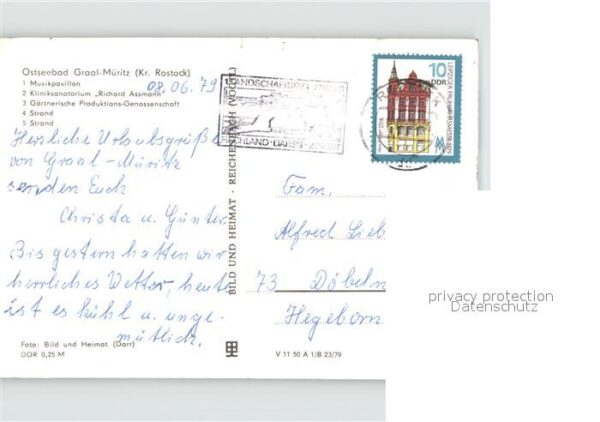 Ostseebad Graal-Müritz (Kr. Rostock)
1 Musikpavillon
2 Kliniksanatorium „Richard Assmann"
3 Gärtnerische Produktions-Genossenschaft
4 Strand
5 Strand
08.06.79
Herzliche Urlaubsgrüße
von Graal-Müritz
senden Euch
Christa u. Günter.
Bis gestern hatten wir
herrliches Wetter, heute
ist es kühl u. unge-
mütlich.
Foto: Bild und Heimat (Darr)
DDR 0,25 M
BILD UND HEIMAT · REICHENBACH (VOGTL)
V 11 50 A 1/B 23/79
LANDSCHAFTS
DARSS
10
DDR
LEIPZIGER FRÜHJAHRSMESSE 1979
Fam.
Alfred Lieb
73 Döbeln
Hegeborn
privacy protection
Datenschutz